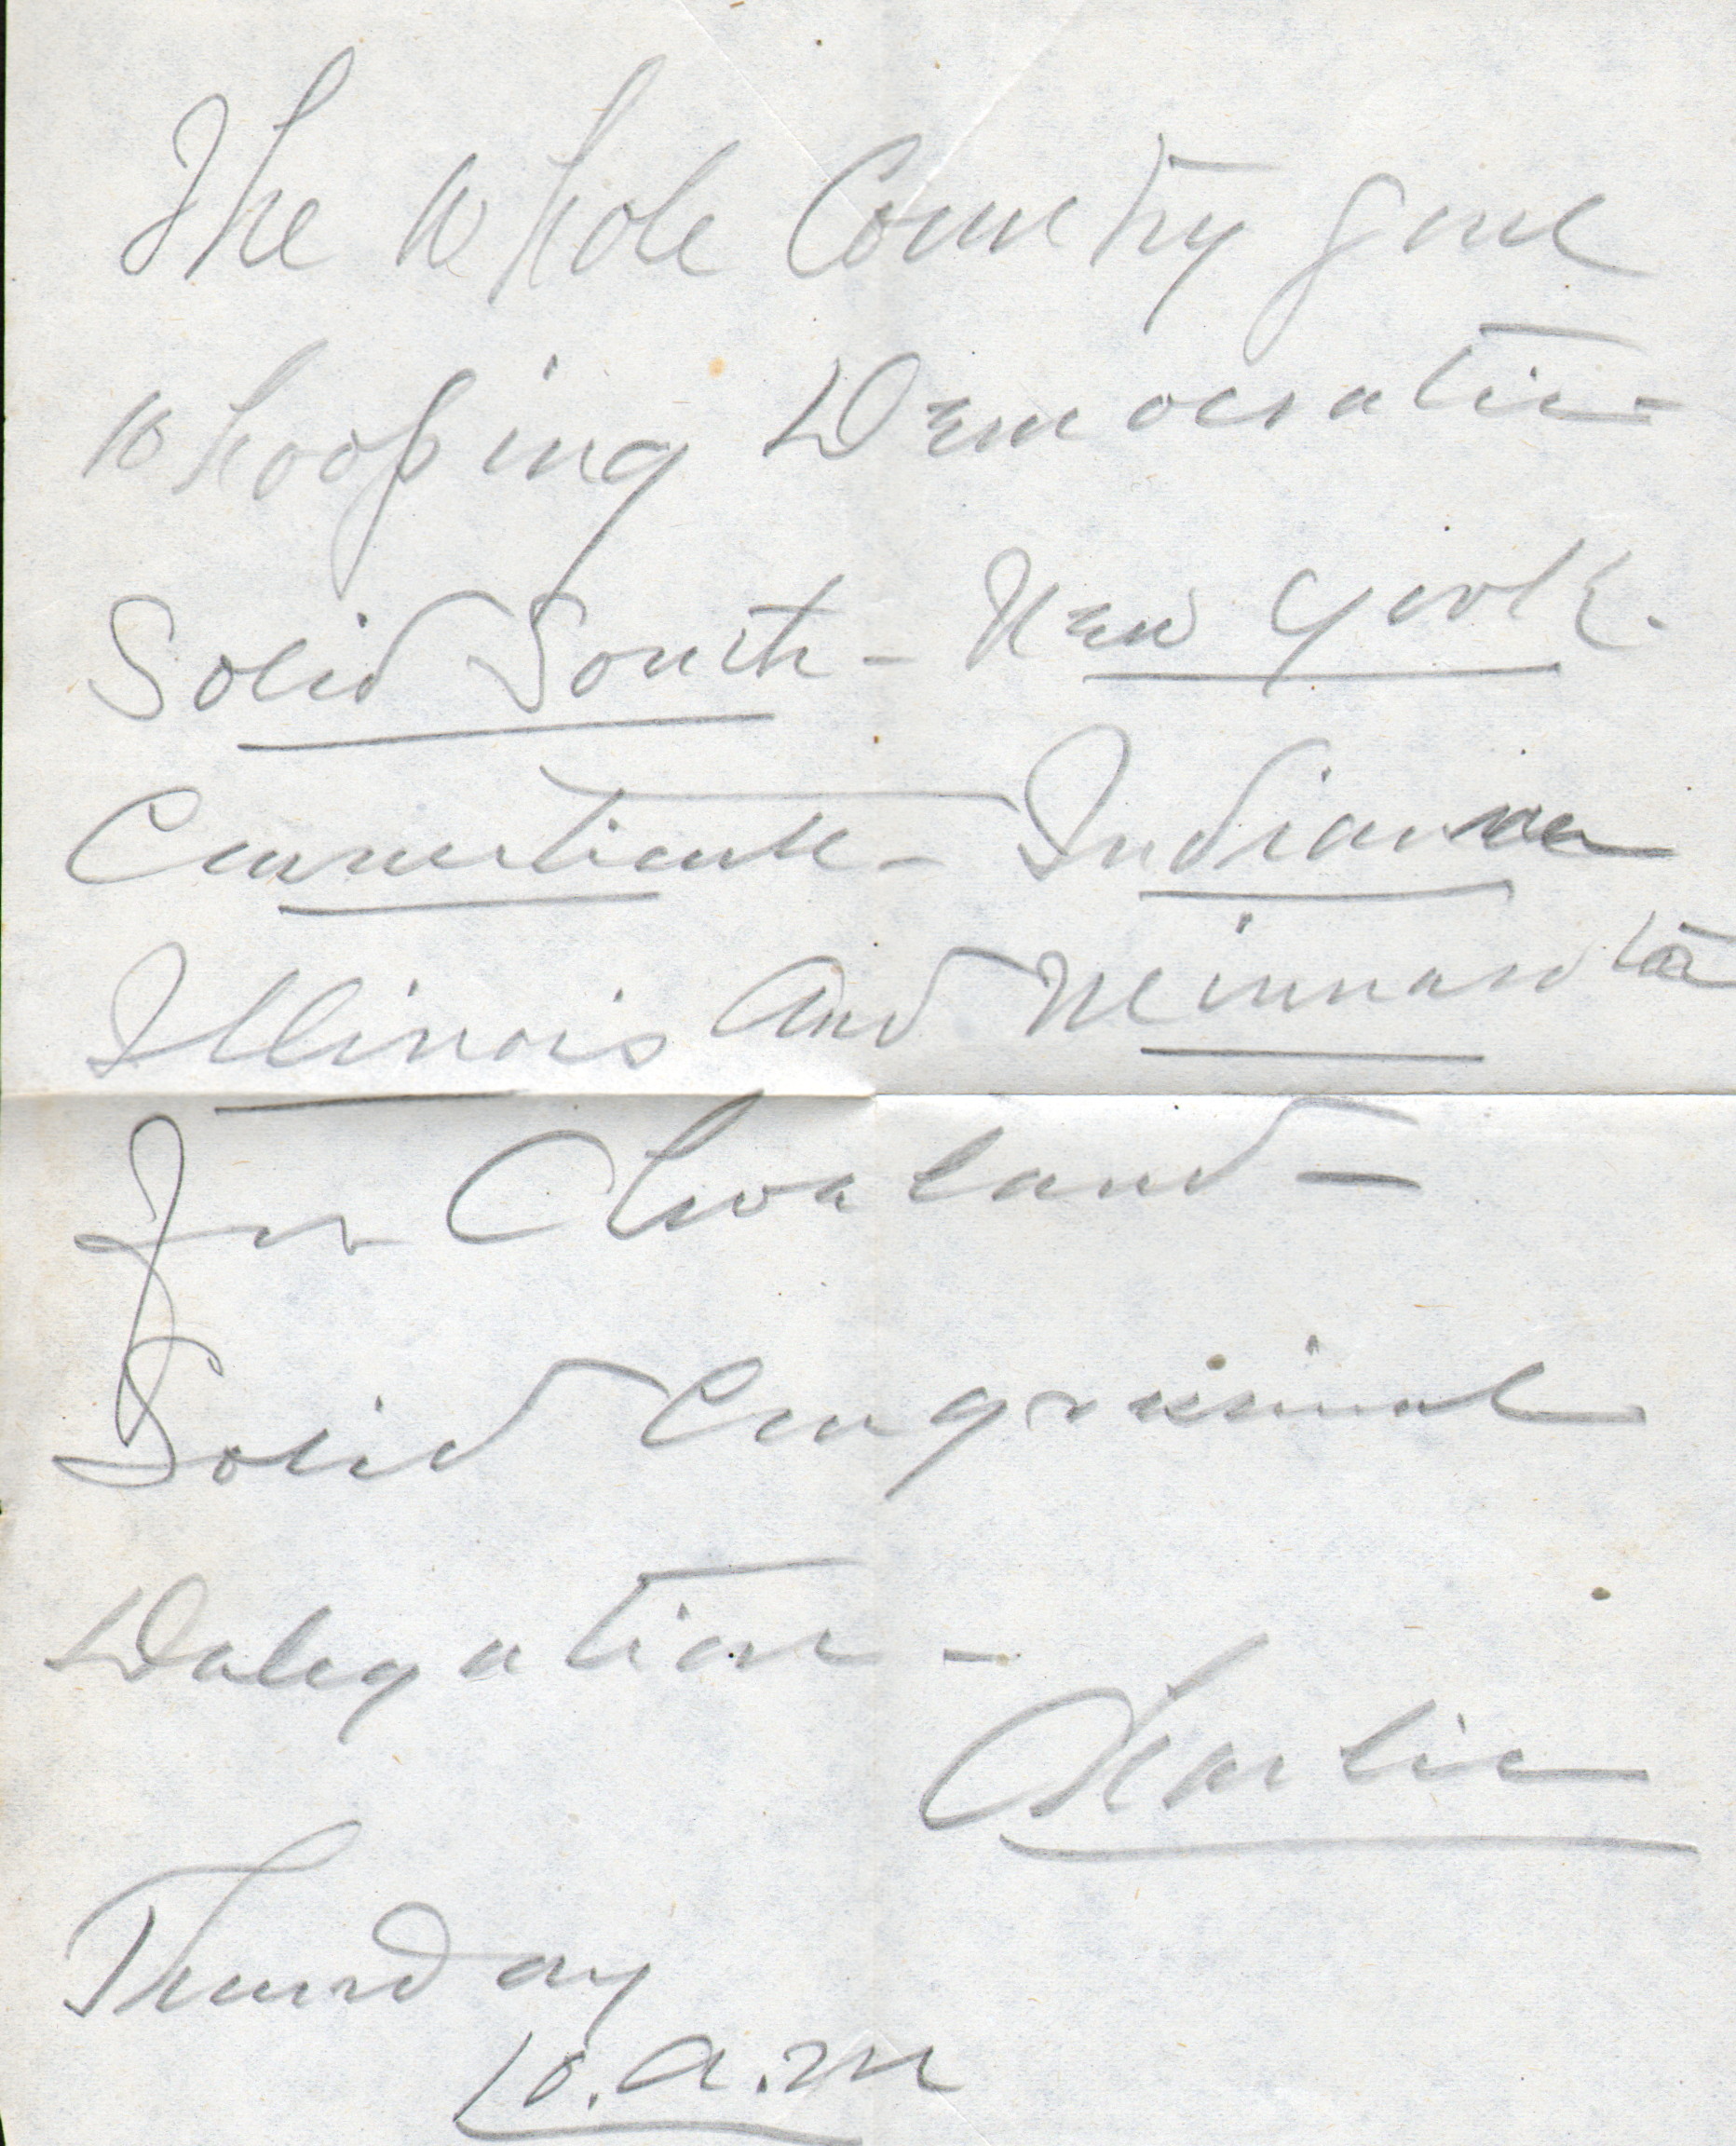 The Whole Country gone
Whooping Democratic-
Solid South - New York.
Connecticutt - Indianna
Illinois and Minnasota
for Clevaland -
Solid Congressional
Dalegation -
Charlie
Thursday
10. a.m